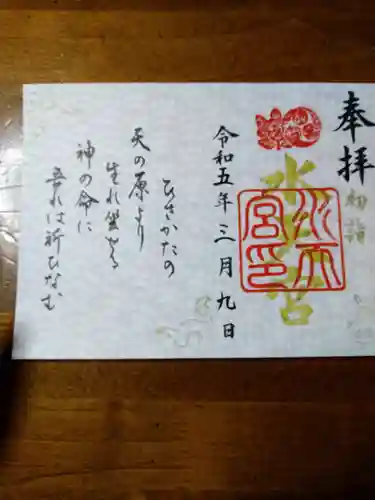 奉拝
初詣
水天宮
水天宮印
令和五年三月九日
ひさかたの
天の原より
生れ坐せる
神の命に
吾れは祈ひなむ